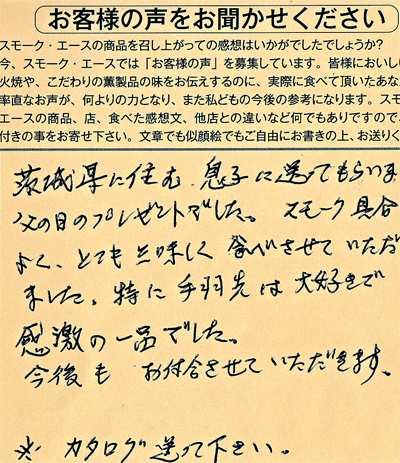 お客様の声をお聞かせください
スモーク・エースの商品を召し上がっての感想はいかがでしたでしょうか?
今、スモーク・エースでは「お客様の声」を募集しています。皆様においし
火焼や、こだわりの薫製品の味をお伝えするのに、実際に食べて頂いたあな
率直なお声が、何よりの力となり、また私どもの今後の参考になります。スモ
エースの商品、店、食べた感想文、他店との違いなど何でもありですので、
付きの事をお寄せ下さい。文章でも似顔絵でもご自由にお書きの上、お送りく
茨城県に住む息子に送ってもらいま
父の日のプレゼントでした。スモーク具合
よく、とても美味しく食べさせていただ
ました。特に手羽先は大好きで
感激の一品でした。
今後もお付合させていただきます。
※ カタログ送って下さい。